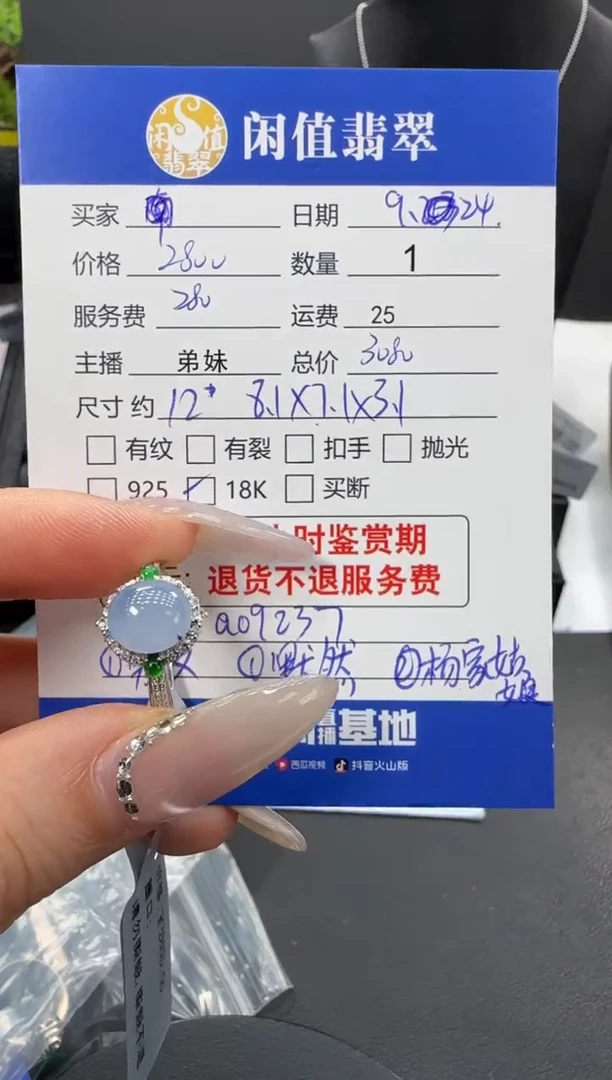 闲值翡翠
闲值翡翠
买家 日期 9. 24.
价格 2800 数量 1
服务费 280 运费 25
主播 弟妹 总价 3080
尺寸 约 12# 8.1X7.1X3.1
有纹 有裂 扣手 抛光
925 18K 买断
时鉴赏期
退货不退服务费
a09237
① ①默然 ②杨家姑娘
播基地
西瓜视频 抖音火山版